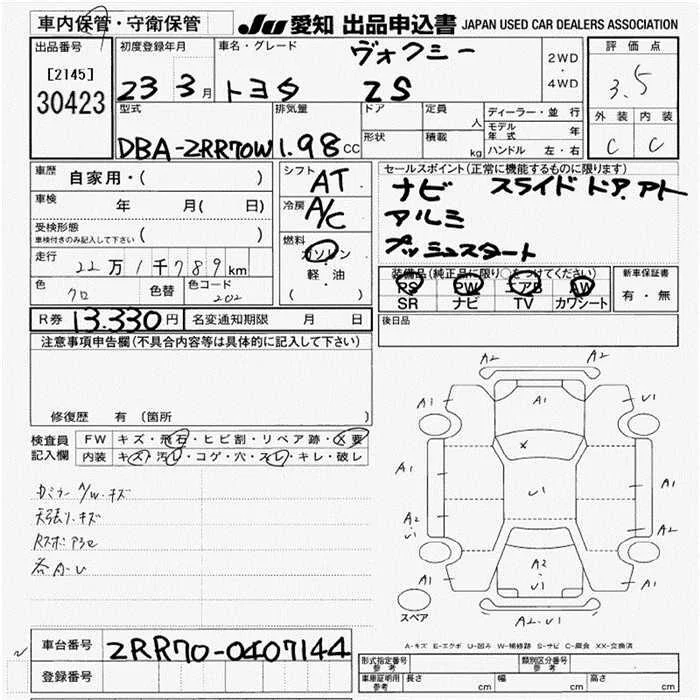 車内保管・守衛保管
JU 愛知 出品申込書 JAPAN USED CAR DEALERS ASSOCIATION
出品番号
[2145]
30423
初度登録年月
23 3月
車名・グレード
ヴォクシー
トヨタ ZS
2WD
・
4WD
評価点
3.5
外装 内装
C C
型式
DBA-ZRR70W
排気量
1.98 CC
ドア
形状
定員
人
積載
kg
ディーラー・並行
モデル年式 年
ハンドル 左・右
車歴
自家用・( )
車検
年 月( 日)
受検形態
車検付きのみ記入して下さい ( )
走行
22万1千789km
色
クロ
色替
色コード
202
シフト
AT
冷房
A/C
燃料
ガソリン
軽・油
( )
セールスポイント(正常に機能するものに限ります)
ナビ スライドドア
アルミ
プッシュスタート
装備品(純正品に限り○をつけてください)
PS PW エアB AW
SR ナビ TV カワシート
新車保証書
有・無
R券 13.330円
名変通知期限 月 日
後日品
注意事項申告欄(不具合内容等は具体的に記入して下さい)
修復歴 有 (箇所
検査員
記入欄
FW キズ・飛石・ヒビ割・リペア跡・X要
内装 キズ・汚レ・コゲ・穴・スレ・キレ・破レ
A/W.キズ
天張リ.キズ
A2 A2
A1 A1 U1
X
A1 U1 A1
A2
U1
A2
U1
A2
A1 A1
スペア
A2-U1
A-キズ E-エクボ U-凹み W-補修跡 S-サビ C-腐食 XX-交換済
車台番号 ZRR70-0407144
登録番号
型式指定番号
参考
類別区分番号
参考
車庫証明用
参考
長さ cm 幅 cm 高さ cm